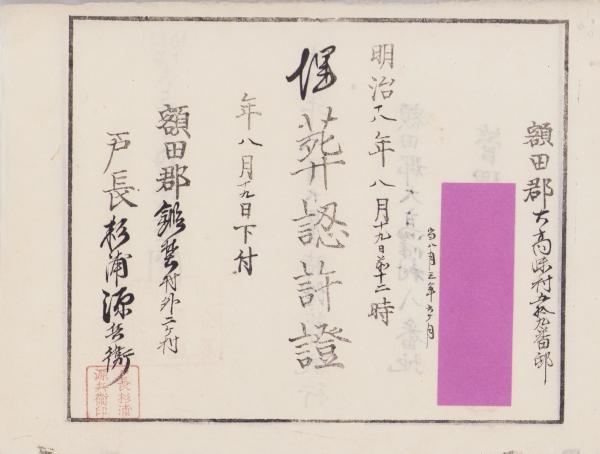 額田郡大高味村五拾九番邸
当八月三年六ヶ月
明治十八年八月十九日前十二時
埋葬認許證
年八月十九日下付
額田郡鍛埜村外二ヶ村
戸長杉浦源兵衛
戸長杉浦
源兵衞印